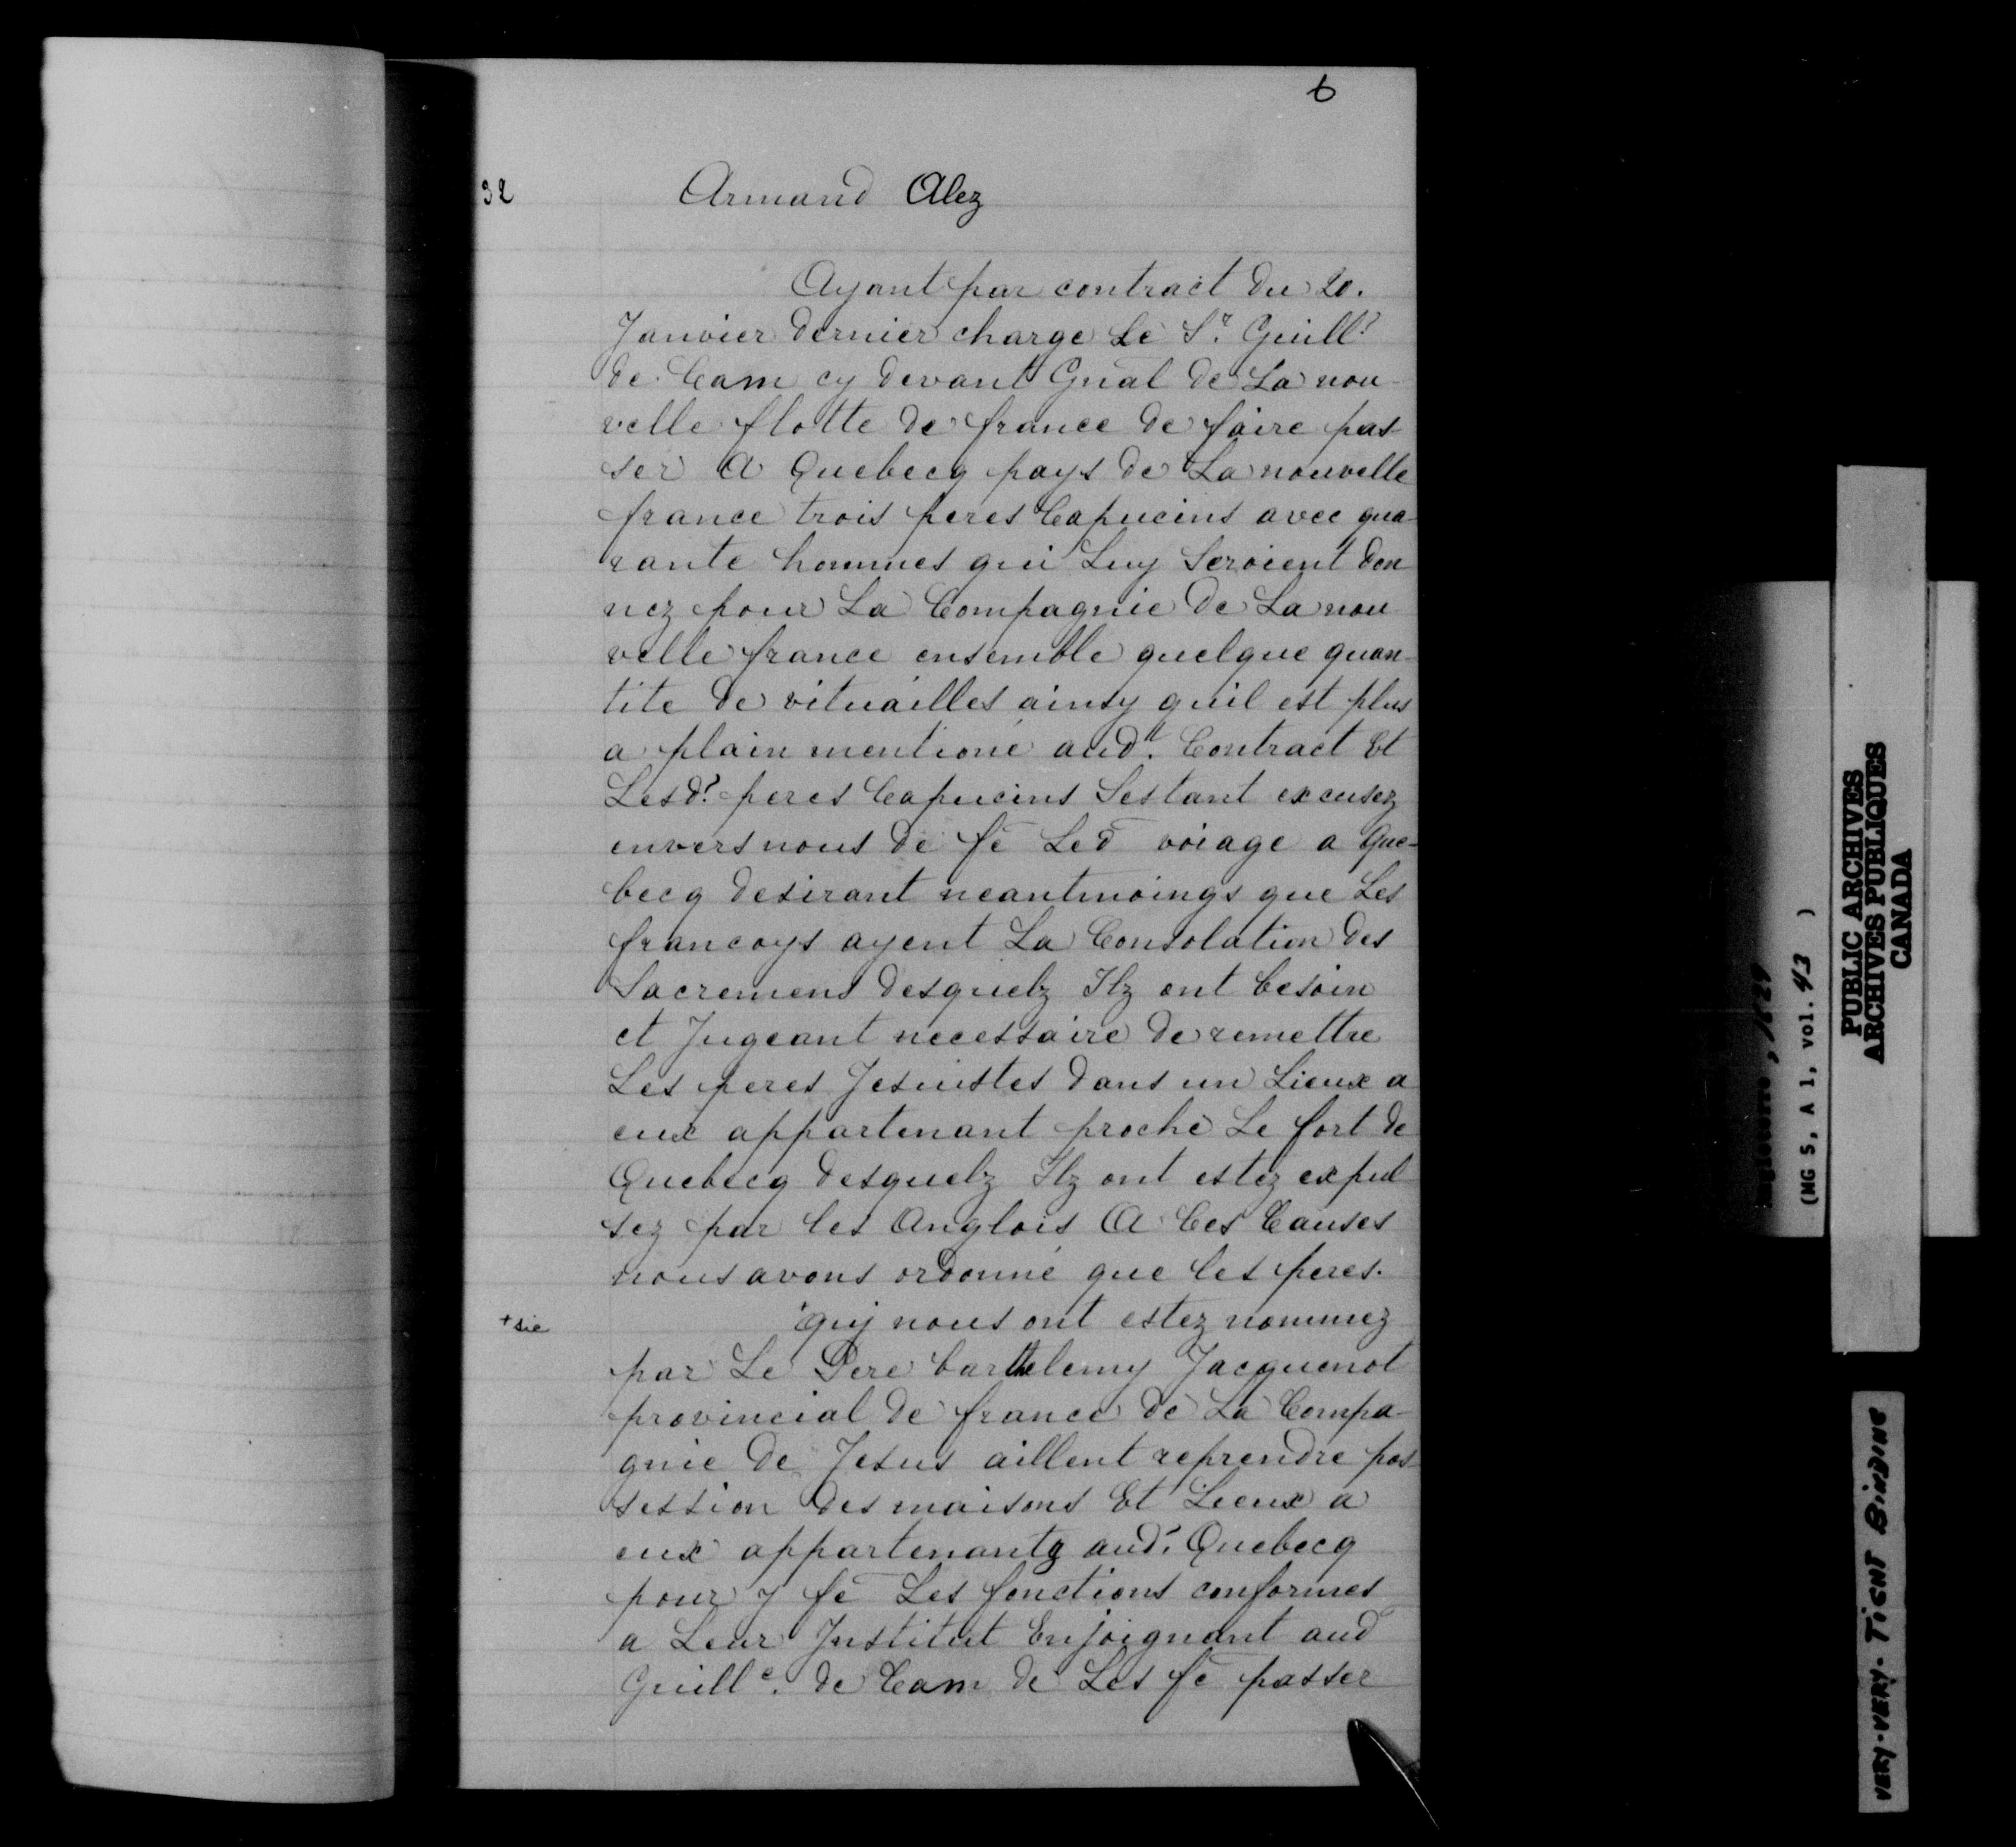 6
32 Armand Alez
Ayant par contract du 20.
Janvier dernier charge Le Sr. Guille
de Cam cy devant Gnãl de La nou-
velle flotte de france de faire pas-
ser A Quebecq pays de La nouvelle
france trois peres Capucins avec qua-
rante hommes qui Luy Seroient don
nez pour La Compagnie de La nou
velle france ensemble quelque quan-
tite de vituailles ainsy quil est plus
a plain mentioné audt. Contract Et
Lesd. peres Capucins Sestant excusez
envers nous de fẽ Led voiage a Que-
becq desirant neantmoings que Les
francoys ayent La Consolation des
Sacremens desquelz Ilz ont besoin
et Jugeant necessaire de remettre
Les peres Jesuistes dans un Lieux a
eux appartenant proche Le fort de
Quebecq desquelz Ilz ont estez expul
sez par les Anglois A Ces Causes
nous avons ordonné que les peres.
+sic +quj nous ont estez nommez
par Le Pere barthelemy Jacquenot
provincial de france de La Compa-
gnie de Jesus aillent reprendre pos
session des maisons Et Lieux a
eux appartenantz aud. Quebecq
pour y fẽ Les fonctions conformes
a Leur Institut Enjoignant aud
Guille. de Cam de Les fẽ passer
Angleterre, 1629
(MG 5, A 1, vol. 43 )
PUBLIC ARCHIVES
ARCHIVES PUBLIQUES
CANADA
VERY-VERY-TIGHT BINDING